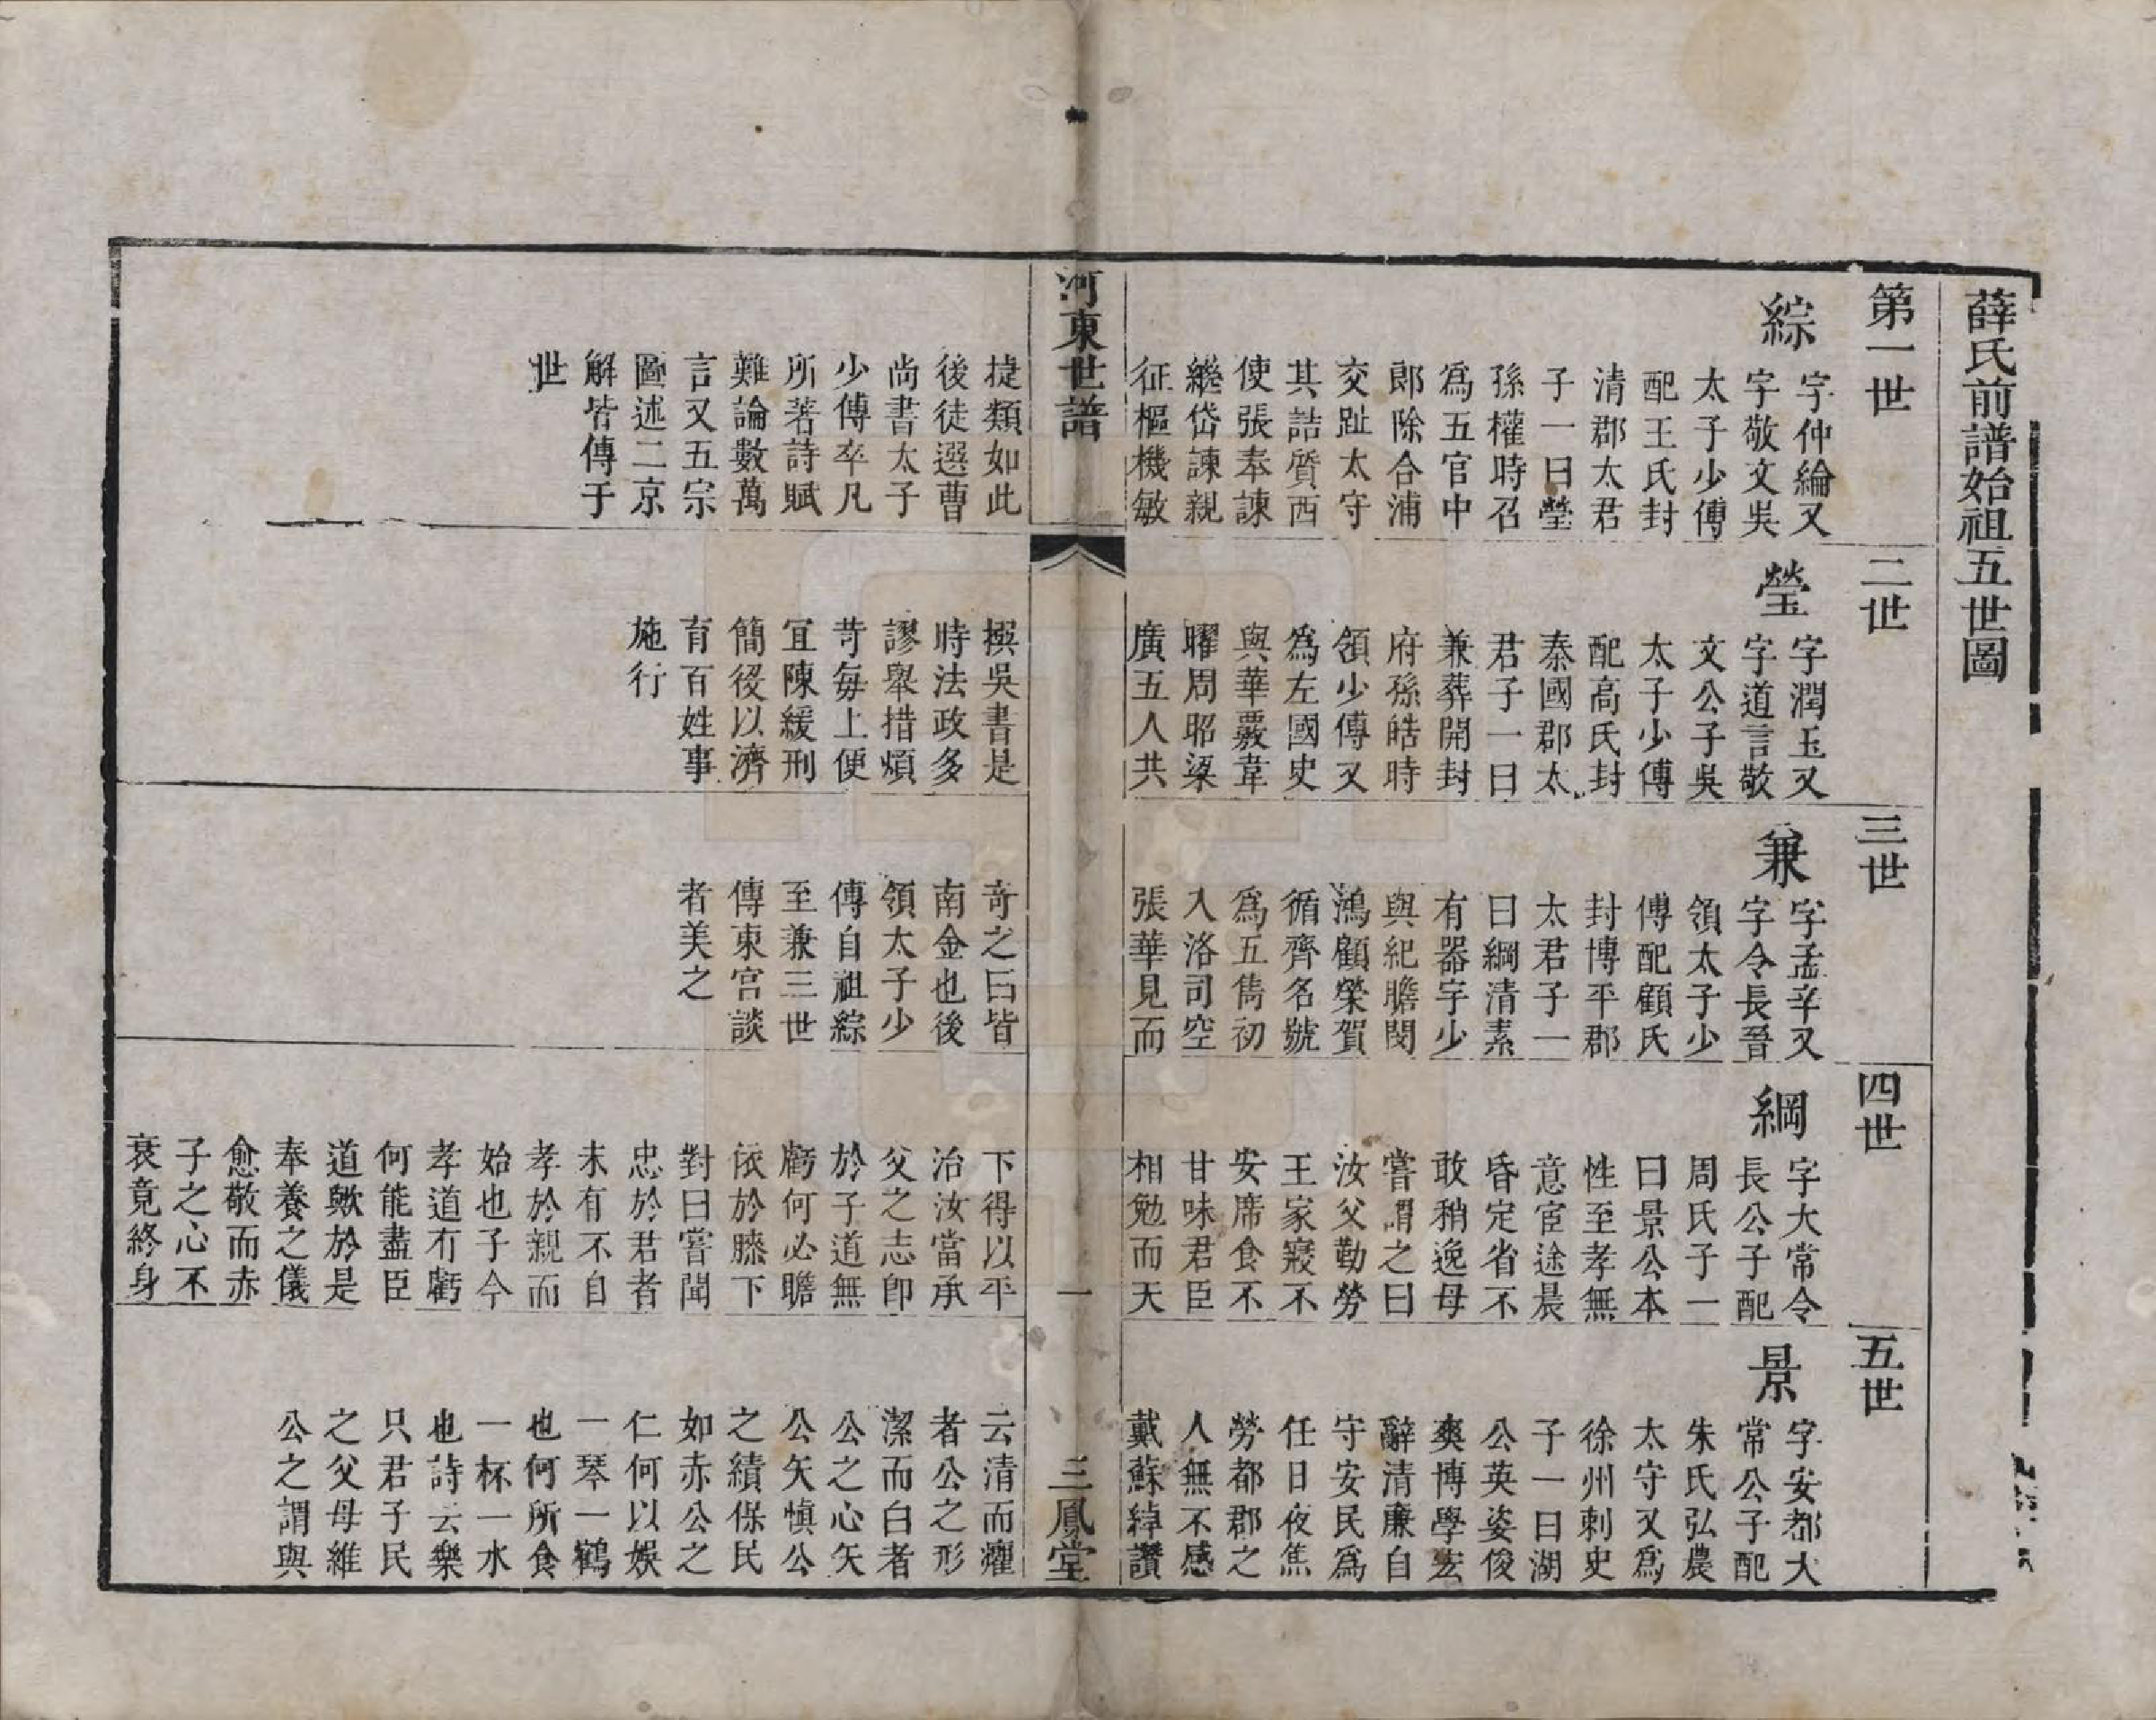 薛氏前譜始祖五世圖
第一世
綜
字仲綸又
字敬文吳
太子少傅
配王氏封
清郡太君
子一曰瑩
孫權時召
爲五官中
郎除合浦
交趾太守
其詰質西
使張奉諫
繼岱諫親
征樞機敏
捷類如此
後徒選曹
尚書太子
少傅卒凡
所著詩賦
難論數萬
言又五宗
圖述二京
解皆傳于
世
二世
瑩
字潤玉又
字道言敬
文公子吳
太子少傅
配高氏封
泰國郡太
君子一曰
兼葬開封
府孫皓時
領少傅又
爲左國史
與華覈韋
曜周昭梁
廣五人共
撰吳書是
時法政多
謬舉措煩
苛每上便
宜陳緩刑
簡役以濟
育百姓事
施行
三世
兼
字孟辛又
字令長晉
領太子少
傅配顧氏
封博平郡
太君子一
曰綱清素
有器宇少
與紀瞻閔
鴻顧榮賀
循齊名號
爲五雋初
入洛司空
張華見而
奇之曰皆
南金也後
領太子少
傅自祖綜
至兼三世
傅東宮談
者美之
四世
綱
字大常令
長公子配
周氏子一
曰景公本
性至孝無
意宦途晨
昏定省不
敢稍逸母
嘗謂之曰
汝父勤勞
王家寢不
安席食不
甘味君臣
相勉而天
下得以平
治汝當承
父之志卽
於子道無
虧何必瞻
依於膝下
對曰嘗聞
忠於君者
未有不自
孝於親而
始也子今
孝道有虧
何能盡臣
道歟於是
奉養之儀
愈敬而赤
子之心不
衰竟終身
五世
景
字安都大
常公子配
朱氏弘農
太守又爲
徐州刺史
子一曰湖
公英姿俊
爽博學宏
辭清廉自
守安民爲
任日夜焦
勞都郡之
人無不感
戴蘇綽讚
云清而濯
者公之形
潔而白者
公之心矢
公矢愼公
之績保民
如赤公之
仁何以娛
一琴一鶴
也何所食
一杯一水
也詩云樂
只君子民
之父母維
公之謂與
河東世譜
一
三鳳堂